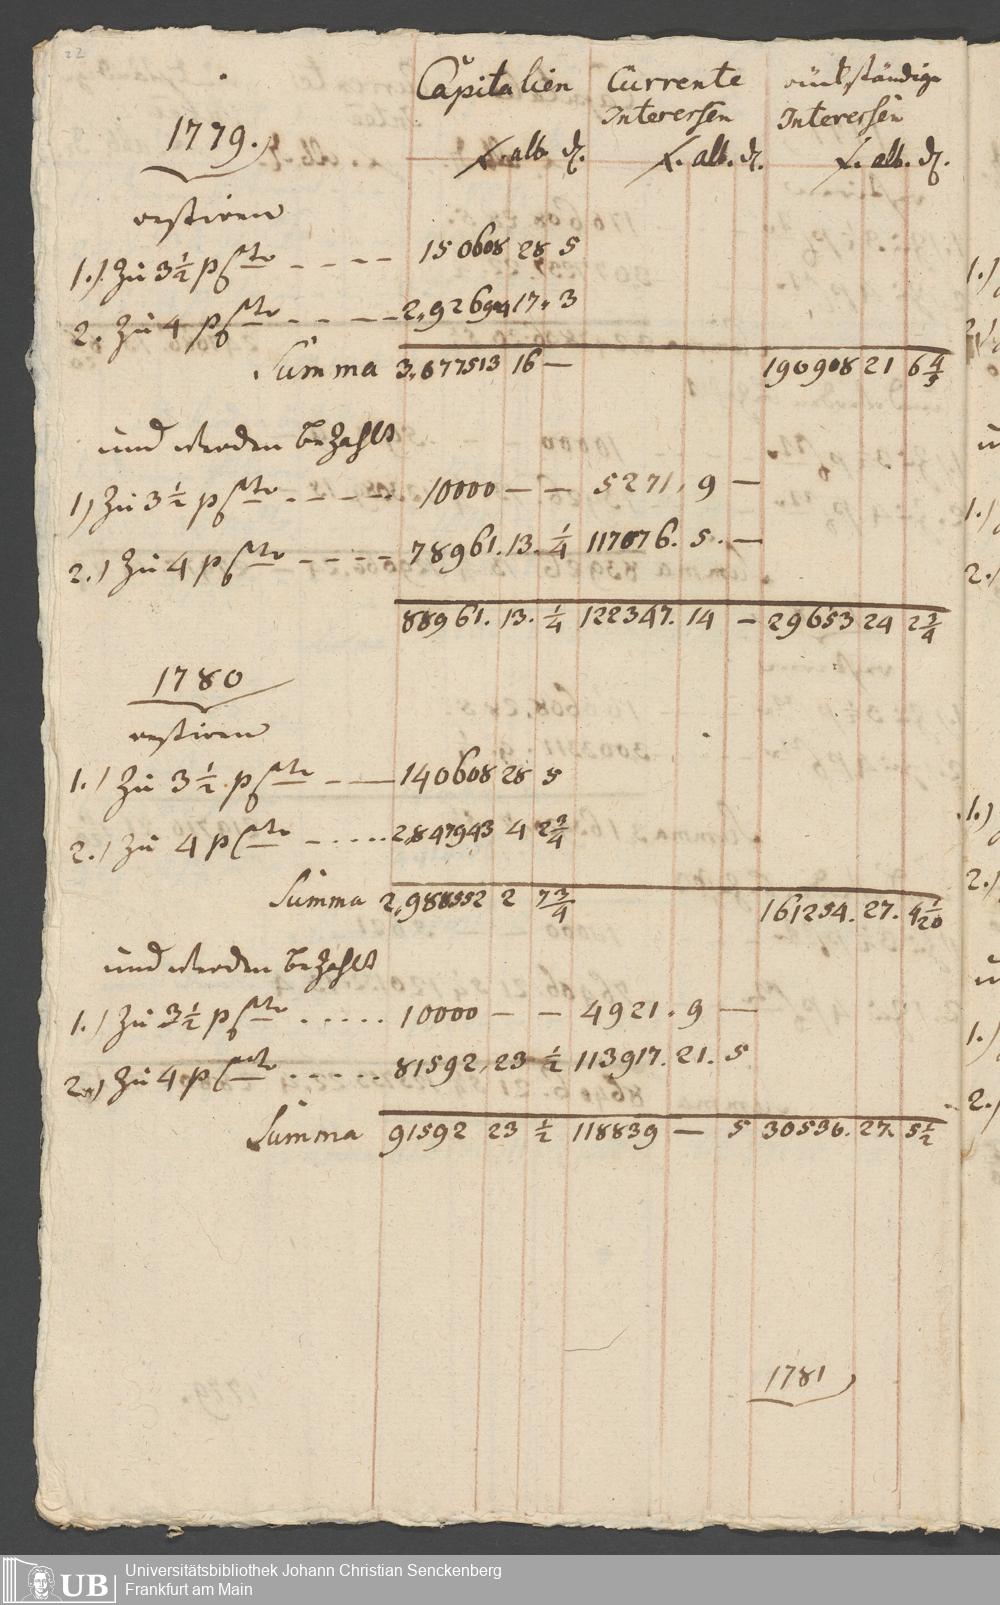 22
Capitalien Currente rückständige
Interessen Interessen
1779.
f. alb. d. f. alb. d. f. alb. d.
restiren
1.) zu 3 1/2 p Cto ---- 150608 28 5
2. zu 4 p Cto ---- 2,926904 17. 3
Summa 3,077513 16 — 190908 21 6 4/5
und werden bezahlt
1) zu 3 1/2 p Cto ---- 10000 — — 5271. 9 —
2.) zu 4 p Cto ---- 78961. 13. 1/4 117076. 5. —
88961. 13. 1/4 122347. 14 — 29653 24 2 3/4
1780
restiren
1.) zu 3 1/2 p Cto —— 140608 28 5
2.) zu 4 p Cto ..... 2,847943 4 2 3/4
Summa 2,988552 2 7 3/4 161254. 27. 4 1/20
und werden bezahlt
1.) zu 3 1/2 p Cto ..... 10000 — — 4921. 9 —
2.) zu 4 p Cto ..... 81592. 23 1/2 113917. 21. 5
Summa 91592 23 1/2 118839 — 5 30536. 27. 5 1/2
1781
UB
Universitätsbibliothek Johann Christian Senckenberg
Frankfurt am Main